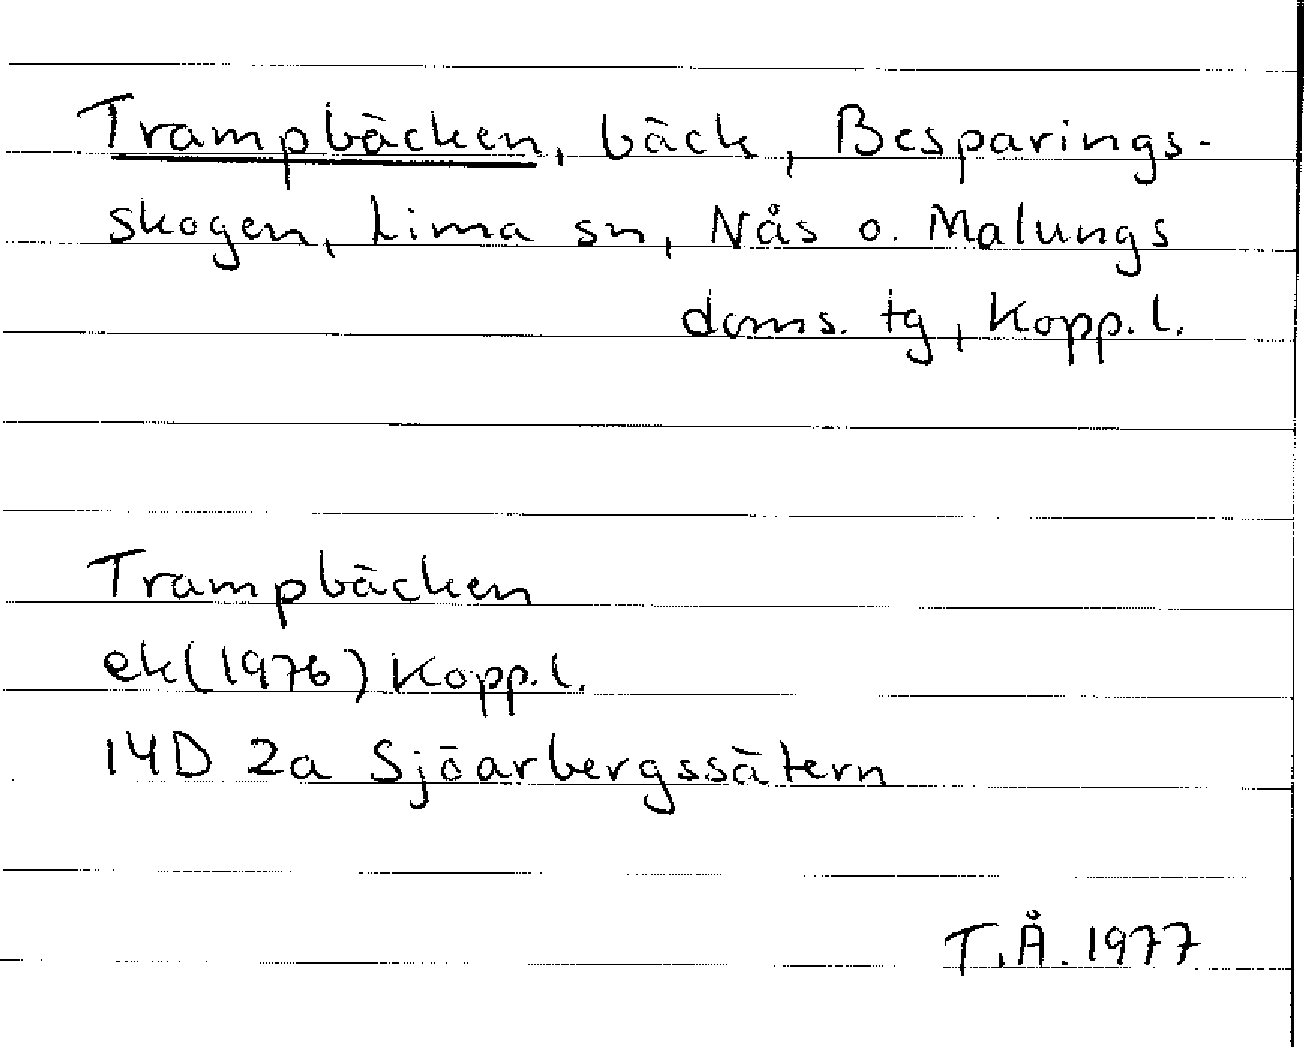 Trampbäcken, bäck, Besparings-
skogen, Lima sn, Nås o. Malungs
doms. tg, Kopp. l.
Trampbäcken
ek (1976) Kopp. l.
14D 2a Sjöarbergssätern
T.Å. 1977